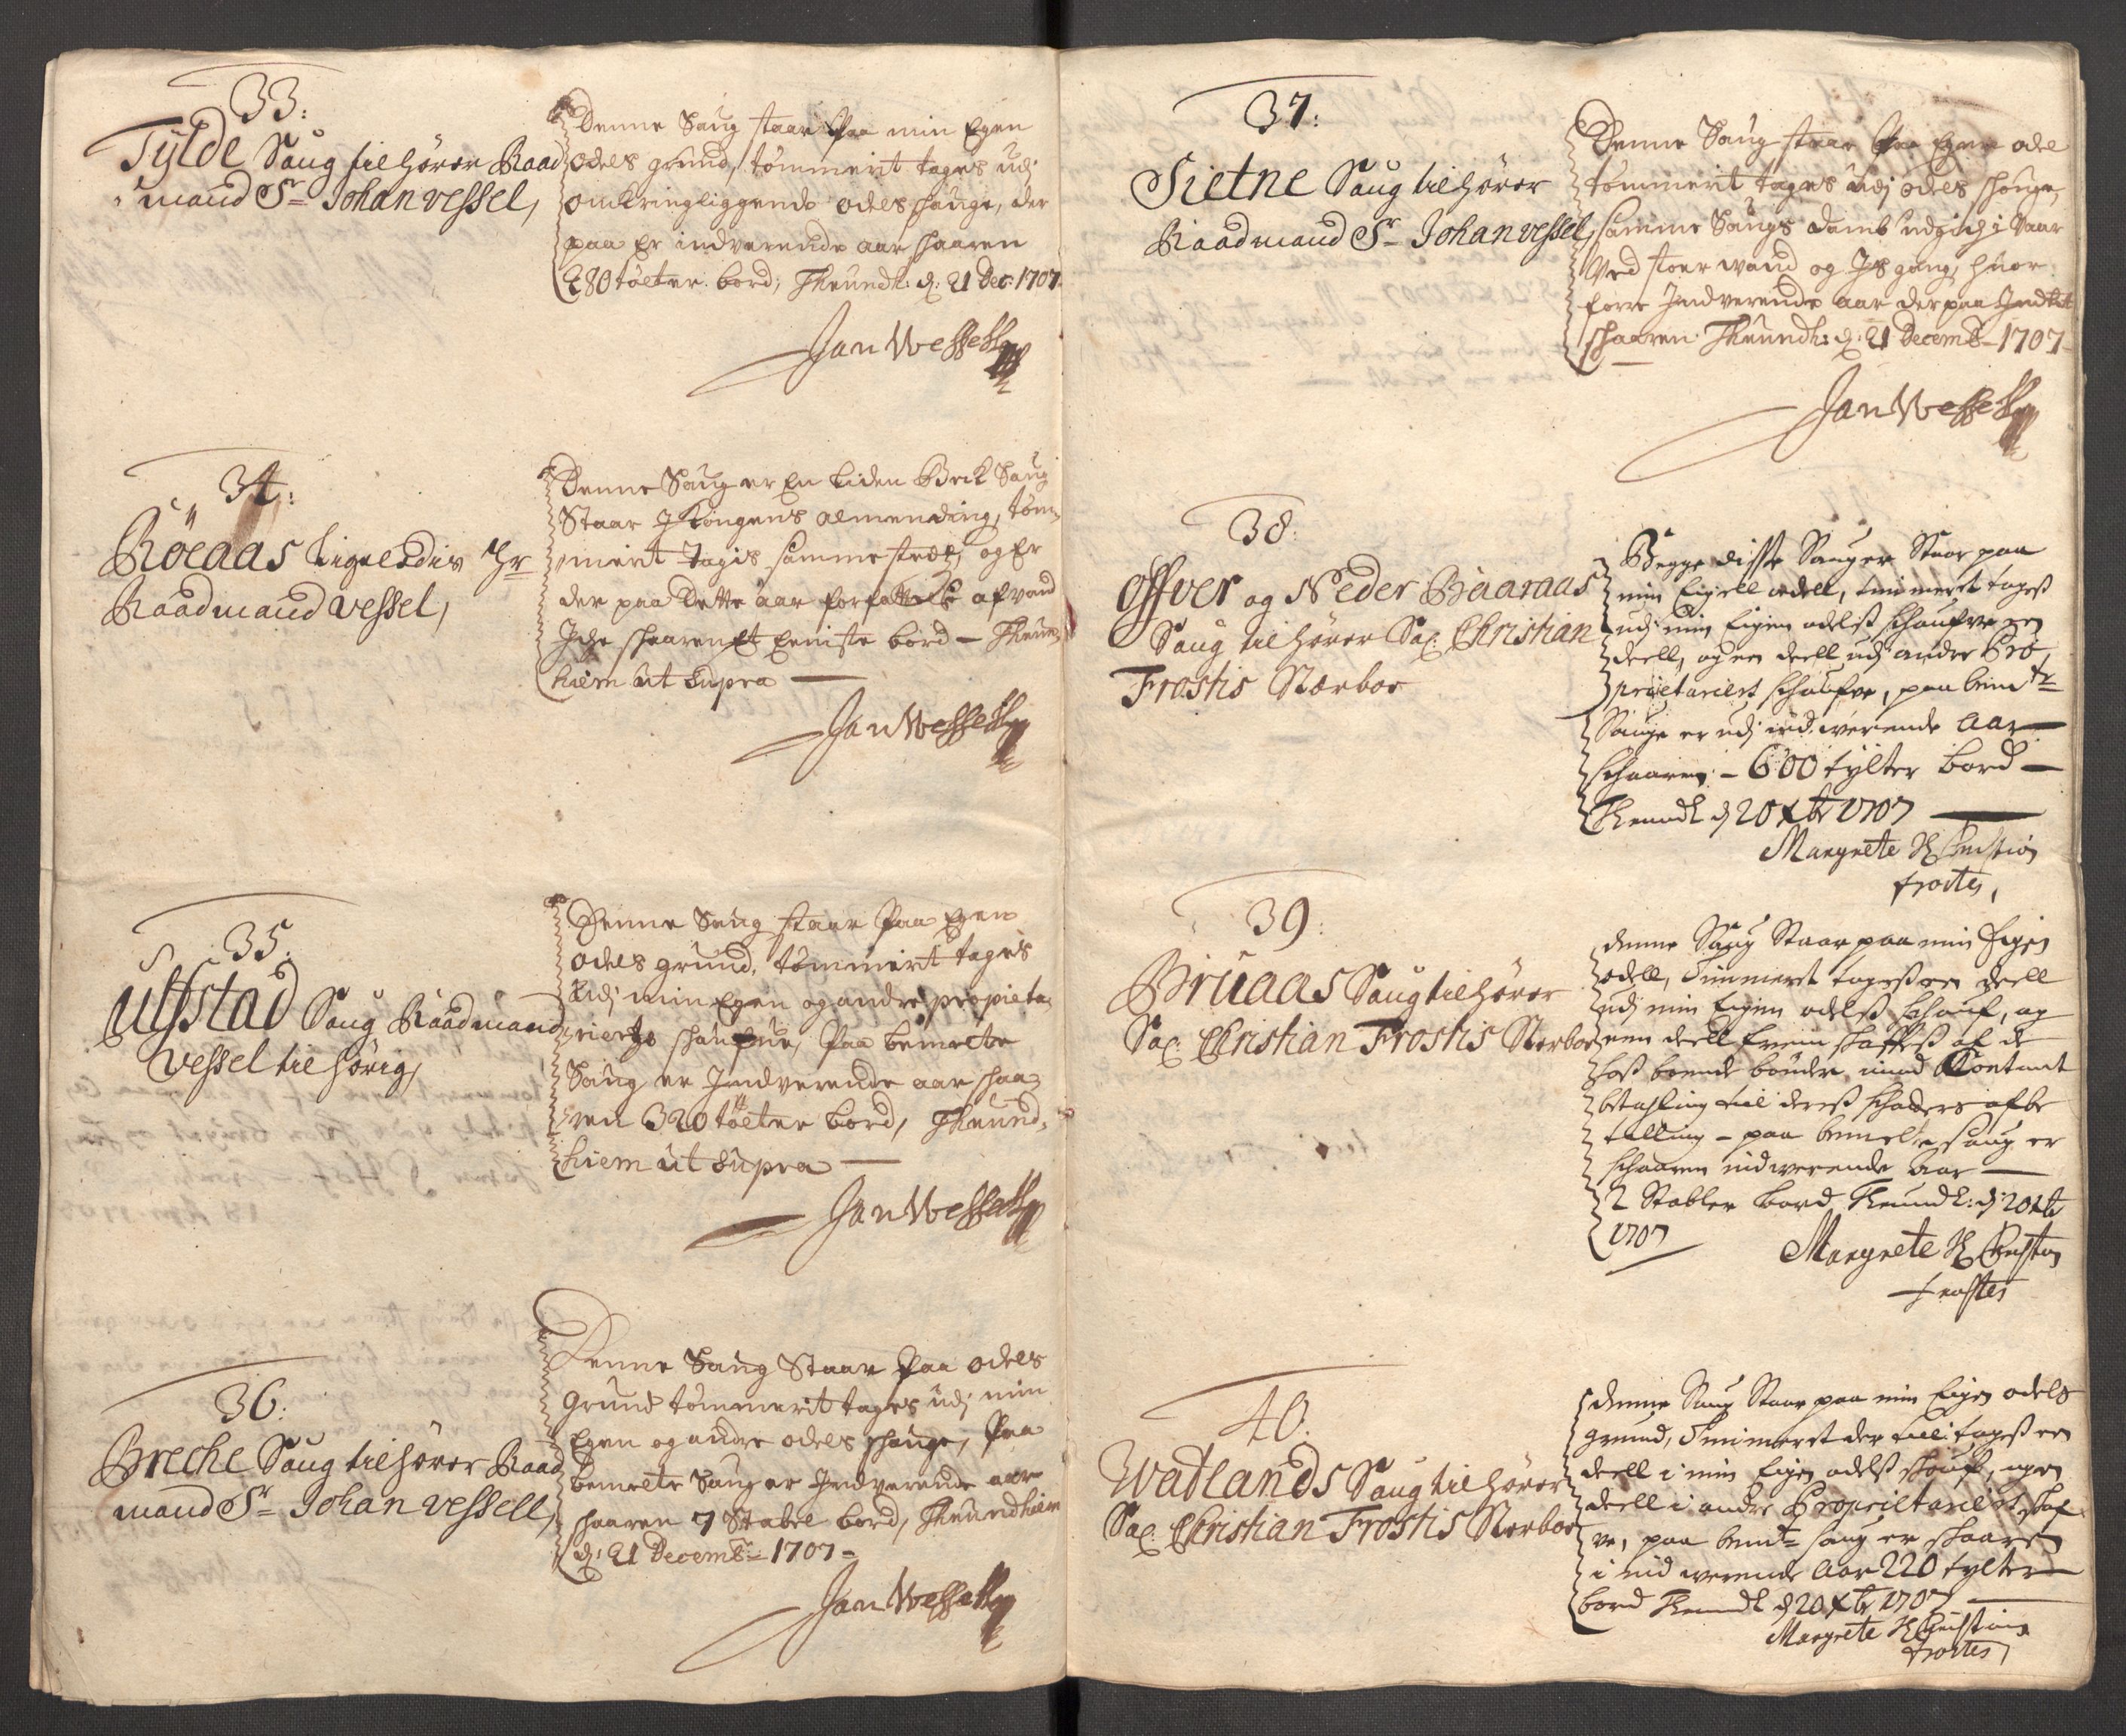 33:
Tylde Saug tilhører Raad
mand Sr Johan vessel,
Denne Saug staar Paa min Egen
odels grund, tømmerit tages udj
omkringliggende odels schauge, der
paa Er indverende aar schaaren
280 tølter bord; Thrundh: d: 21 Dec: 1707
Jan Wessell
34:
Röeaas Ligeledis hr
Raadmand vessel,
Denne Saug er En Liden Beck Saug
Staar I Kongens almending, töm,
merit tagis samme stræt, og Er
der paa dette aar for af vand
Iche schaaren Et Eniste bord – Thrun,
hiem ut supra
Jan Wessell
35.
Ulfstad Saug Raadmand
Vessel tilhørig,
Denne Saug staar Paa Egen
odels grund, tømmerit tages
Udj min Egen og andre propieta,
riers schaufue, Paa bemelte
Saug er Indverende aar schaa,
ren 320 tölter bord, Thrund,
hiem ut supra
Jan Wessell
36:
Breche Saug tilhører Raad
mand Sr Johan vessell,
Denne Saug Staar Paa odels
Grund tömmerit tages udj min
Egen og andre odels schauge, Paa
bemelte Saug er Indverende aar
schaaren 7 Stabel bord, Thrundhiem
d: 21 Decembr 1707
Jan Wessell
37:
Sietne Saug tilhører
Raadmand Sr Johan vessel,
Denne Saug staar Paa Egen odel
tömmerit tages Udj odels schouge,
samme Saugs damb udgich i Vaar
Ved stoer vand og Is gang, huor
forre Indverende aar der paa Indtet
schaaren Thrundh: d: 21 Decemb 1707
Jan Wessell
38:
Offver og Neder Baaraas
Saug tilhører Sal: Christian
Frostis Stervboe
Begge disse Sauger Staar paa
min Eigen odell, timmeret tages
udj min Eigen odelss schaufve een
deell, og en deell udj andre Pro
prietariers schaufve, paa bemte
Sauge er udj indwerende Aar
schaaren – 600 tylter bord –
Thrundh d 20 Xbr 1707
Margrete Sl Christian
frostes,
39:
Bruaas Saug tilhører
Sal: Christian Frostis Sterboe
denne Saug Staar paa min Eigen
odell, Timmeret tagess een deell
udj min Eigen odelss schouf, og
een deell skaffess af de
hoss boende bönder imod Contant
betahling till deress schaders afbe
talling – paa bemelte saug er
schaaren indwerende Aar
2 Stabler bord Thrundh: d: 20 Xbr
1707
Margrete Sl Christian
frostes
40:
Watlands Saug tilhører
Sal: Christian Frostis Sterboe
denne Saug Staar paa min Eigen odels
grund, Timmeret der till tagess een
deell i min Eigen odelss schouf, og en
deell i andre Proprietariers schof
ve, paa bemte saug er schaaren
i indwerende Aar 220 tylter
bord Thrundh d 20 Xbr 1707
Margrete Sl Christian
frostes,